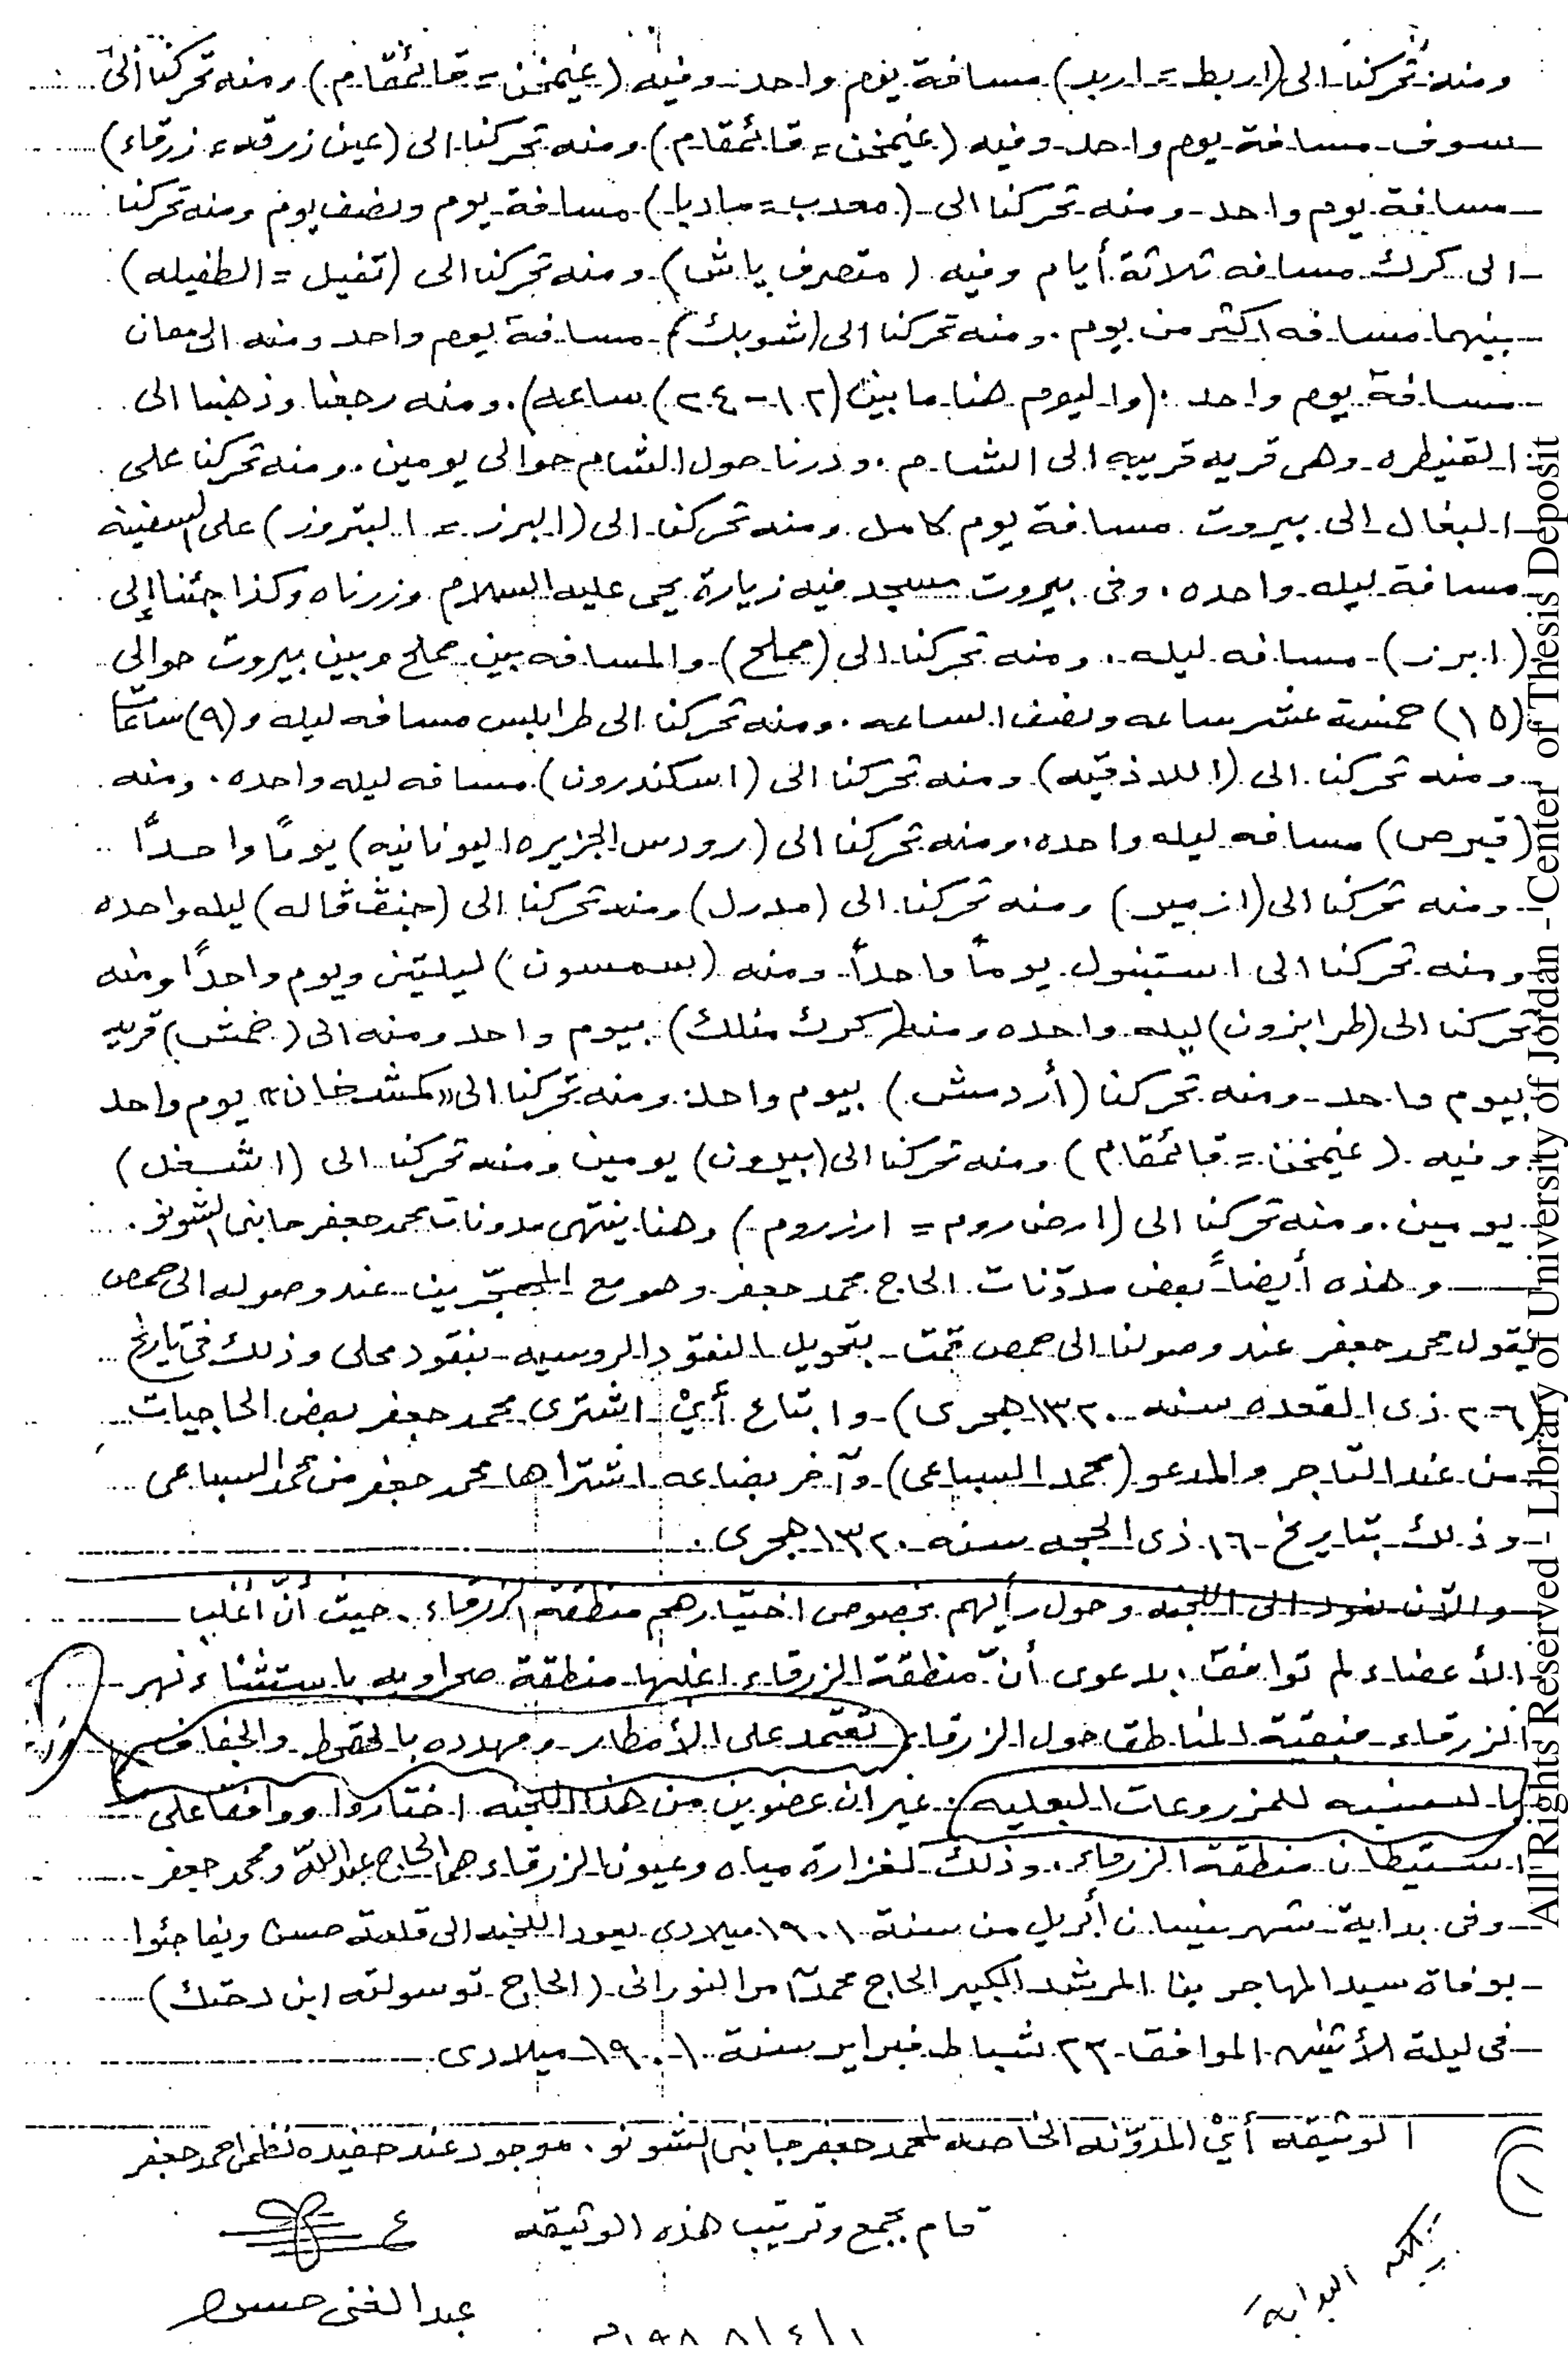 ومنه تحركنا الى (اربط = اربد) مسافة يوم واحد وفيه (غيمخن = قائمقام) ومنه تحركنا الى
سوف مسافة يوم واحد وفيه (غيمخن = قائمقام) ومنه تحركنا الى (عين زرقه = زرقاء)
مسافة يوم واحد ومنه تحركنا الى (معدب = مادبا) مسافة يوم ونصف يوم ومنه تحركنا
الى كرك مسافه ثلاثة أيام وفيه (متصرف باش) ومنه تحركنا الى (تفيل = الطفيله)
بينهما مسافه اكثر من يوم . ومنه تحركنا الى (شوبك) مسافة يوم واحد ومنه الى معان
مسافة يوم واحد . (واليوم هنا ما بين (١٢ - ٢٤) ساعه) . ومنه رجعنا وذهبنا الى
القنيطره وهى قريه قريبه الى الشام . ودرنا حول الشام حوالى يومين . ومنه تحركنا على
البغال الى بيروت مسافة يوم كامل ومنه تحركنا الى (البرز = البتروز) على السفينة
مسافة ليله واحده . وفى بيروت مسجد فيه زيارة يحى عليه السلام وزرناه وكذا جئنا إلى
(ابرز) مسافه ليله . ومنه تحركنا الى (مملح) والمسافه بين مملح وبين بيروت حوالي
(١٥) خمسة عشر ساعه ونصف الساعه . ومنه تحركنا الى طرابلس مسافه ليله و (٩) ساعات
ومنه تحركنا الى (اللاذقيه) ومنه تحركنا الى (اسكندرون) مسافه ليله واحده . ومنه
(قبرص) مسافه ليله واحده ، ومنه تحركنا الى (رودس الجزيره اليونانيه) يومًا واحدًا
ومنه تحركنا الى (ازمير) ومنه تحركنا الى (مدرل) ومنه تحركنا الى (جنڨ ڨاله) ليله واحده
ومنه تحركنا الى استنبول يوماً واحداً . ومنه (بسمسون) ليلتين ويوم واحدًا ومنه
تحركنا الى (طرابزون) ليله واحده ومنه (كرك منلك) بيوم واحد ومنه الى (خمش) قريه
بيوم واحد ومنه تحركنا (أردمش) بيوم واحد . ومنه تحركنا الى «كمشدخان» يوم واحد
وفيه (غيمخن = قائمقام) ومنه تحركنا الى (بيبون) يومين ومنه تحركنا الى (اشغل)
يومين . ومنه تحركنا الى (ارض روم = ارزروم) وهنا ينتهى مدونات محمد جعفر حابنى الشونو .
وهذه أيضاً بعض مدوّنات الحاج محمد جعفر وهو مع المهجّرين عند وصوله الى حمص
يقول محمد جعفر عند وصولنا الى حمص قمت بتحويل النقود الروسيه بنقود محلى وذلك فى تاريخ
(٢٦ ذى القعده سنه ١٣٢٠ هجرى) وابتاع أيْ اشترى محمد جعفر بعض الحاجيات
من عند التاجر والمدعو (محمد السباعى) وآخر بضاعه اشتراها محمد جعفر من محمد السباعى
وذلك بتاريخ ١٦ ذى الحجه سنه ١٣٢٠ هجرى .
والآن نعود الى اللجنه وحول رأيهم بخصوص اختيارهم منطقة الزرقاء . حيث أنّ اغلب
الأعضاء لم توافق ، بدعوى أنّ منطقة الزرقاء اغلبها منطقة صحراويه باستثناء نهر
الزرقاء فبقية المناطق حول الزرقاء (تعتمد على الأمطار ومهدده بالقحط والجفاف
بالنسبه للمزروعات البعليه) . غير ان عضوين من هذه اللجنه اختاروا ووافقا على
استيطان منطقة الزرقاء . وذلك لغزارة مياه وعيون الزرقاء هما الحاج عبد اللّه ومحمد جعفر
وفى بداية شهر نيسان أبريل من سنة ١٩٠١ ميلادى يعود اللجنه الى قلعة حسن ويفاجئوا
بوفاة سيد المهاجرين المرشد الكبير الحاج محمد آمر النورانى (الحاج توسولته ابن دحتك)
فى ليلة الأثنين الموافق ٢٣ شباط فبراير سنة ١٩٠١ ميلادى
الوثيقه أيْ المدوّنه الخاصه لمحمد جعفر حابنى الشونو . موجود عند حفيده نظمى احمد جعفر
قام بجمع وترتيب هذه الوثيقه
عبد الغنى حسن
١/٤/١٩٨٨م
البداية
All Rights Reserved - Library of University of Jordan - Center of Thesis Deposit